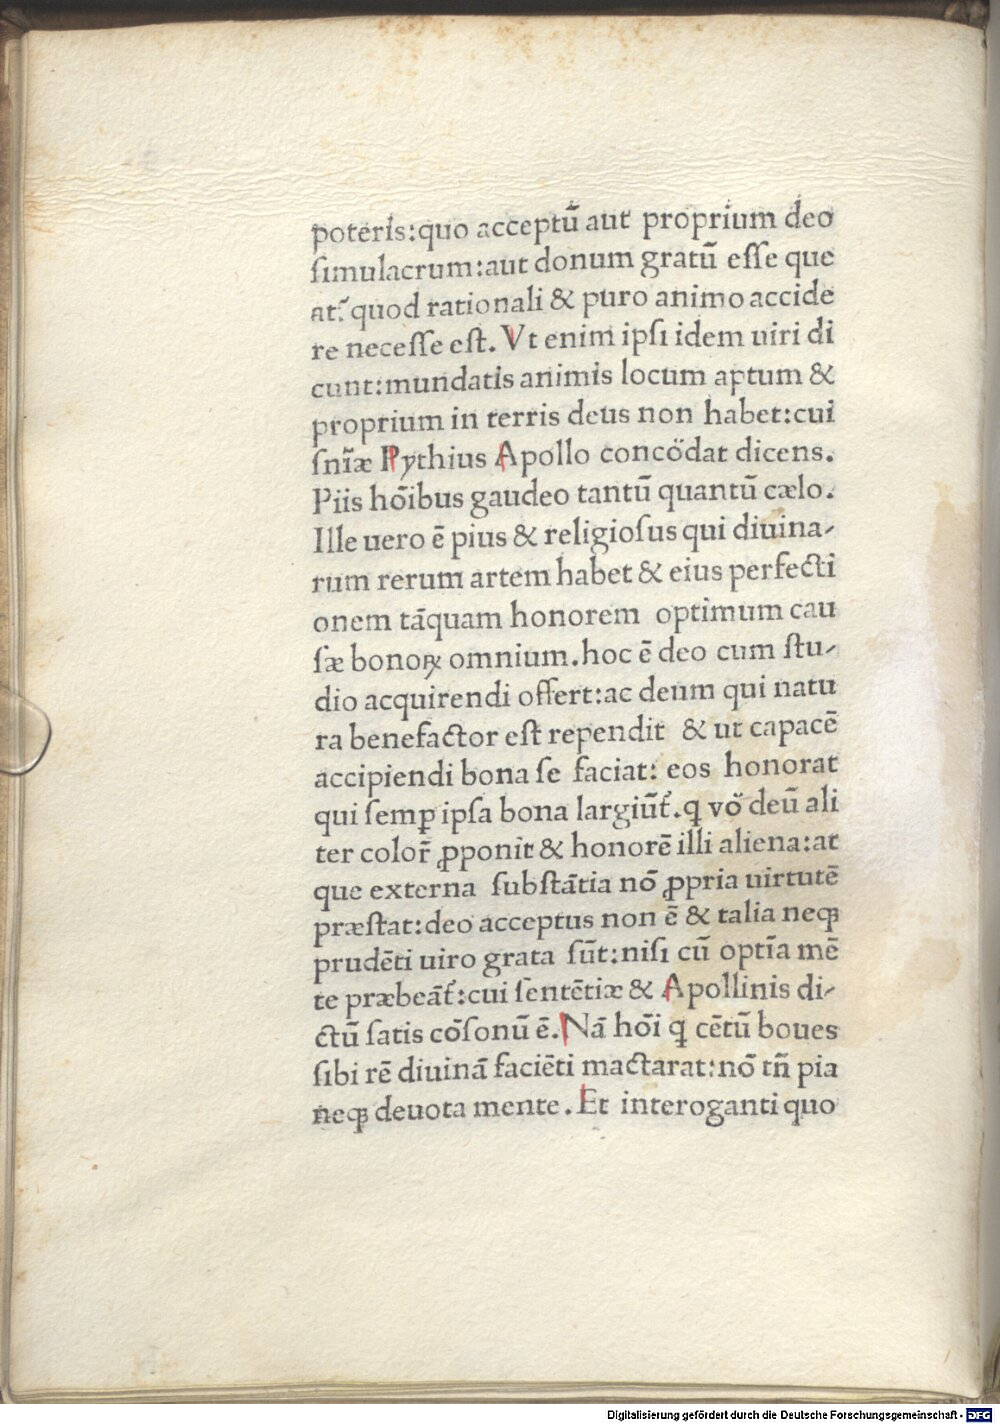 poteris:quo acceptū aut proprium deo
ſimulacrum:aut donum gratū eſſe que
at: quod rationali & puro animo accide
re neceſſe eſt. Vt enim ipſi idem uiri di
cunt:mundatis animis locum aptum &
proprium in terris deus non habet:cui
ſnīæ Pythius Apollo concōdat dicens.
Piis hōibus gaudeo tantū quantū cælo.
Ille uero ē pius & religioſus qui diuina-
rum rerum artem habet & eius perfecti
onem tāquam honorem optimum cau
ſæ bonoꝝ omnium.hoc ē deo cum ſtu-
dio acquirendi offert:ac deum qui natu
ra benefactor eſt rependit & ut capacē
accipiendi bona ſe faciat: eos honorat
qui ſemꝑ ipſa bona largiūt̄.q vō deū ali
ter color̄ ꝓponit & honorē illi aliena:at
que externa ſubſtātia nō ꝓpria uirtutē
præſtat:deo acceptus non ē & talia neqꝫ
prudēti uiro grata ſūt:niſi cū optīa mē
te præbeāt̄:cui ſentētiæ & Apollinis di-
ctū ſatis cōſonū ē.Nā hōi q cētū boues
ſibi rē diuinā faciēti mactarat:nō tn̄ pia
neqꝫ deuota mente.Et interoganti quo
Digitalisierung gefördert durch die Deutsche Forschungsgemeinschaft - DFG